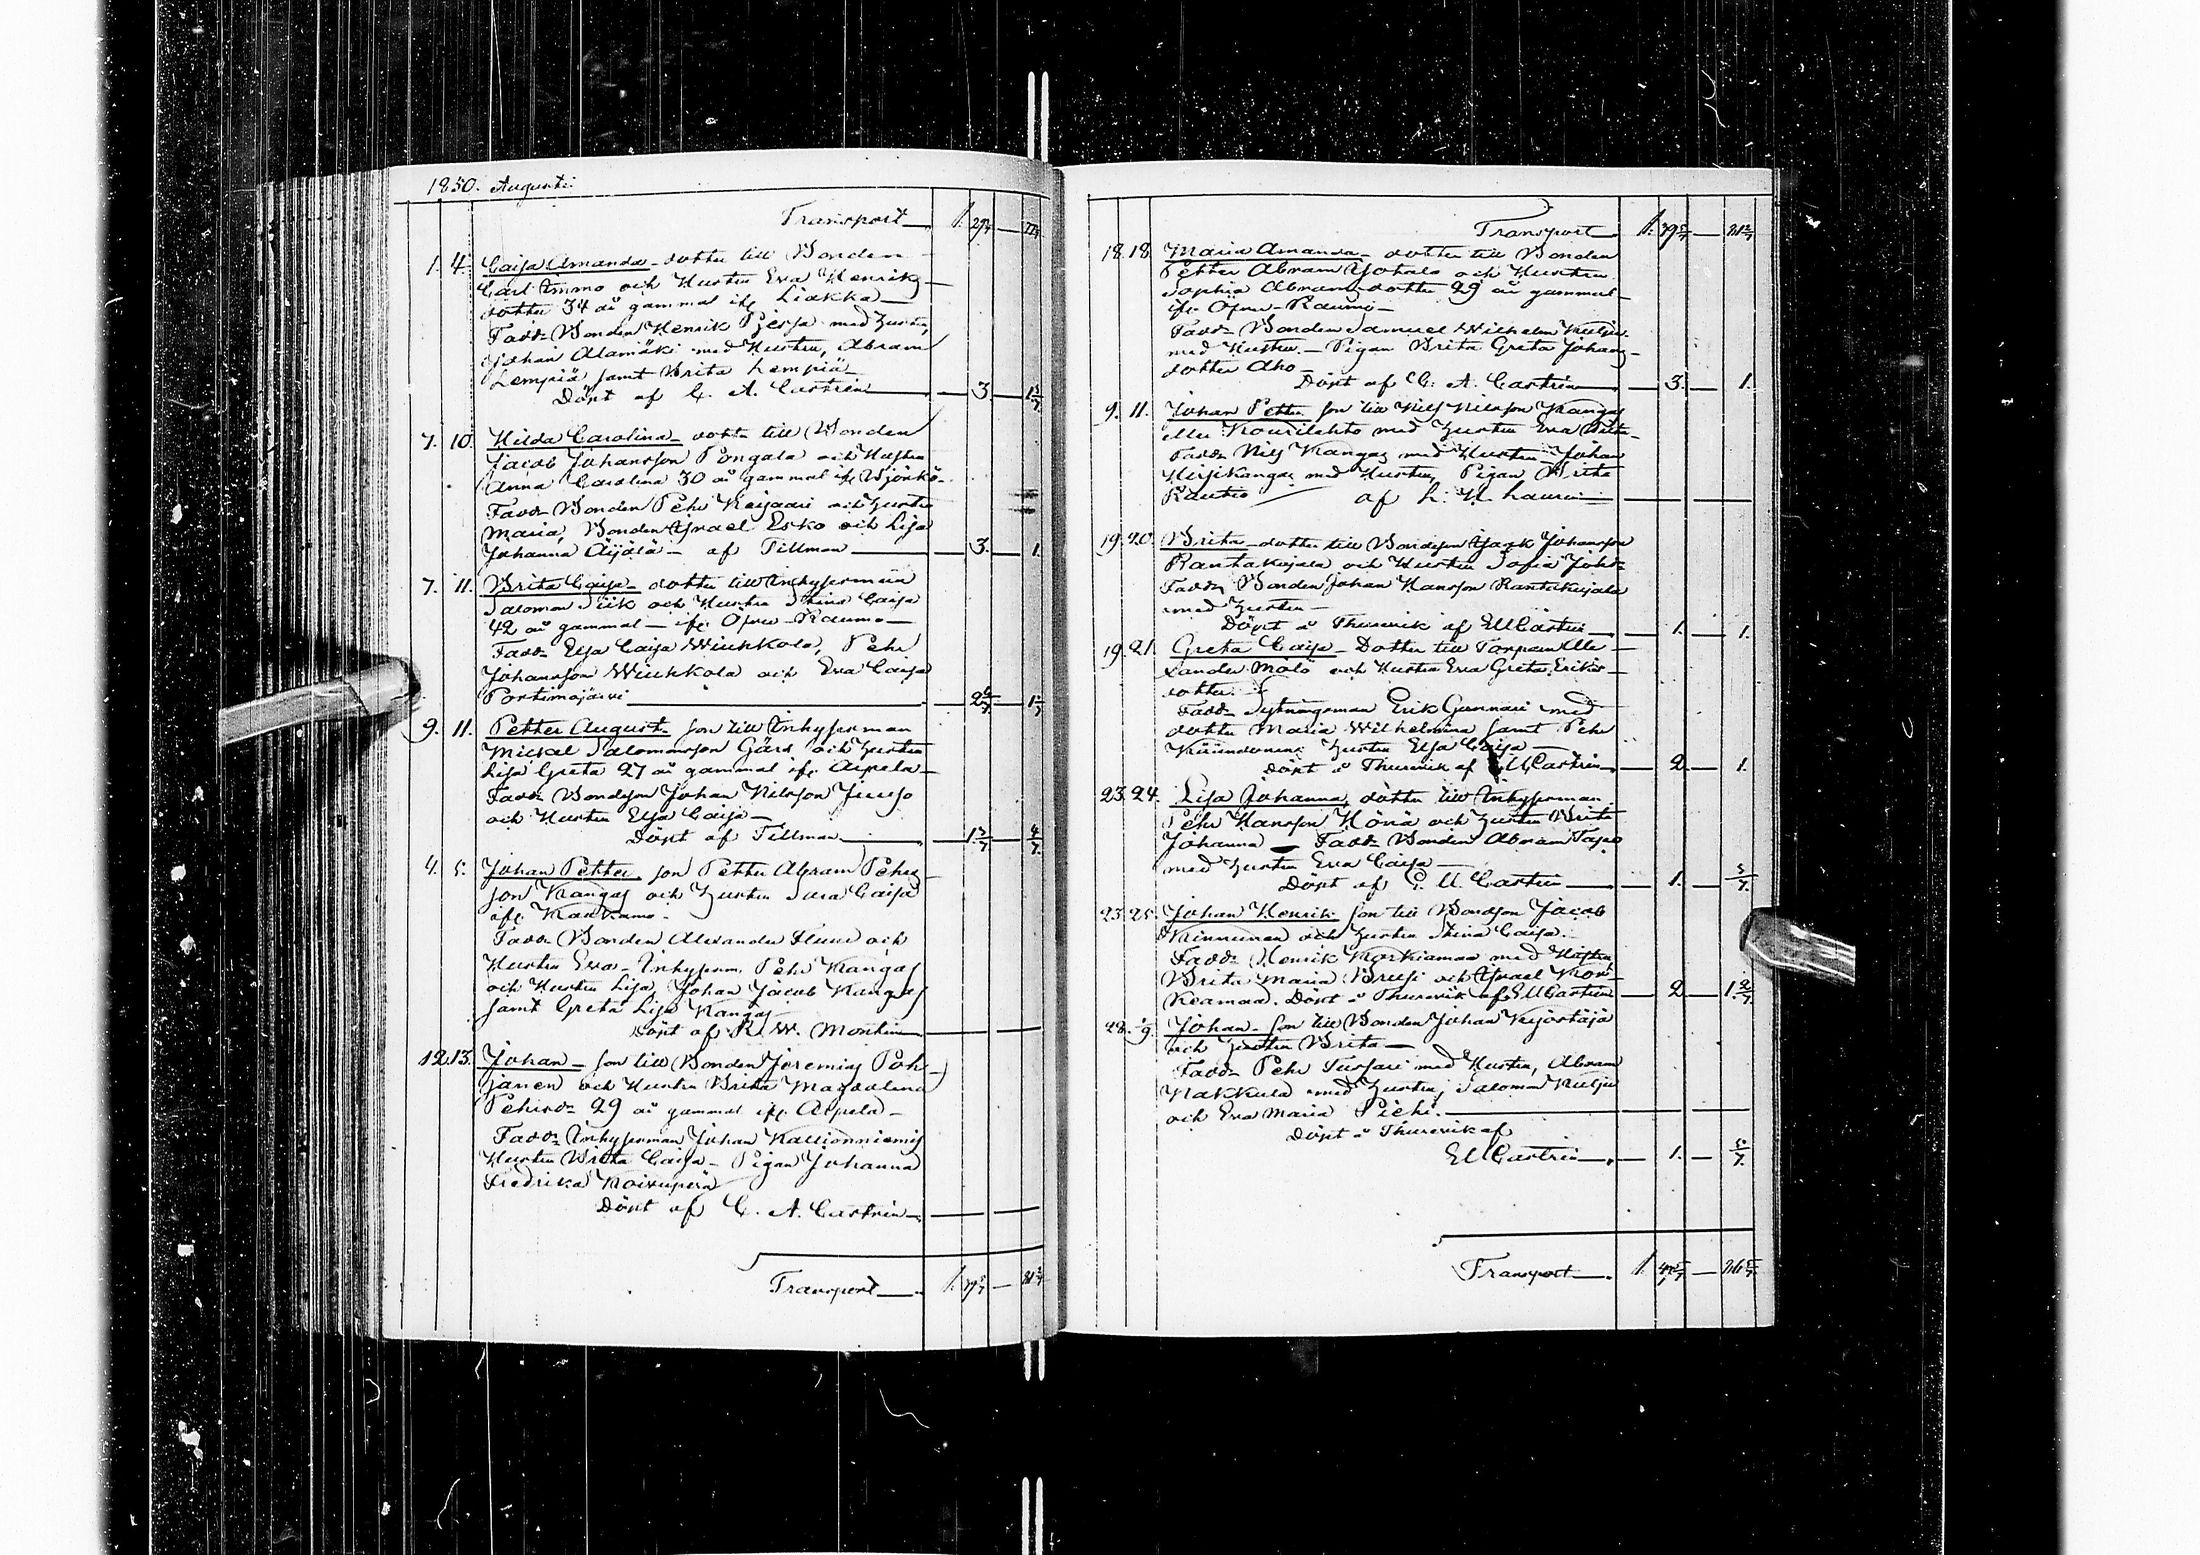 1850. Augusti.
Transport
1. 4. Caisa Amanda - dotter till Bonden
Carl Immo och Hustru Eva Henriks
dotter 34 år gammal ifr Liakka
Fadd: Bonden Henrik Pjesja med hustru,
Johan Alamäki med Hustru, Abram
Lempiä samt Brita Lempiä
Döpt af C. A. Castrén 3
7. 10. Hilda Carolina - dotter till Bonden
Jacob Johansson Pongala och Hustru
Anna Carolina 30 år gammal ifr Björkö
Fadd: Bonden Pehr Keijaari och hustru
Maria, Bonden Israel Esko och Lisa
Johanna Äijälä - af Tillman 3. 1.
7. 11. Brita Caisa - dotter till Inhysesman
Salomon Siik och Hustru Stina Caisa
42 år gammal - ifr Öfver-Raumo -
Fadd: Elsa Caisa Wiinkkola, Pehr
Johansson Wiinkkola och Eva Caisa
Portimojärvi
9. 11. Petter August - son till Inhysesman
Mickel Salomonsson Gärd och hustru
Lisa Greta 27 år gammal ifr Arpela -
Fadd: Bondeson Johan Nilsson Juuso
och Hustru Elsa Caisa -
Döpt af Tillman
4. 5. Johan Petter son Petter Abram Pehrs
son Kangas och hustru Sara Caisa
ifr Kaakamo.
Fadd: Bonden Alexander och
Hustru Eva - Inhysesm. Pehr Kangas
och Hustru Lisa, Johan Jacob Kangas
samt Greta Lisa Kangas
Döpt af R. W. Montin
12. 13. Johan - son till Bonden Jeremias Poh-
janen och Hustru Brita Magdalena
Pehrsd: 29 år gammal ifr Arpela -
Fadd: Inhysesman Johan Kauionniemis
Hustru Brita Caisa - Pigan Johanna
Fredrika Koivuperä
Döpt af C. A. Castrén
Transport
Transport
18. 18. Maria Amanda - dotter till Bonden
Petter Abram Yotala och Hustru
Sophia Abramsdotter 29 år gammal
ifr Öfver-Raumo -
Fadd: Bonden Samuel Wilhelm Kulju
med Hustru. - Pigan Brita Greta Johans-
dotter Aho -
Döpt af C. A. Castrén 3. 1.
9. 11. Johan Petter son till Nils Nilsson Kangas
eller Kourilehto med hustru Eva
Fadd: Nils Kangas med Hustru Johan
Hirsikangas med Hustru, Pigan Brita
Rautio af L. H. Laurin
19. 20. Brita - dotter till Bondeson Isack Johansson
Rantakujala och Hustru Sofia Johsd:
Fadd: Bonden Johan Hansson Rantakujala
med hustru -
Döpt å Thurevik af EUCastrén 1. 1.
19. 21. Greta Caisa - Dotter till Torparen Ale-
xander Mölö och Hustru Eva Greta Eriks-
dotter.
Fadd: Sytningsman Erik Gunnari med
dotter Maria Wilhelmina samt Pehr
hustru Elsa Caisa
Döpt å Thurevik af EUCastrén 2 1.
23. 24. Lisa Johanna, dotter till Inhysesman
Pehr Hansson Hönä och hustru Brita
Johanna - Fadd: Bonden Abram Tapio
med hustru Eva Caisa -
Döpt af E. U. Castrén 1. 5/7.
23. 25. Johan Henrik son till Bondson Jacob
Kinnunen och hustru Stina Caisa.
Fadd: Henrik Korkiamaa med Hustru,
Brita Maria Brusi och Israel Kor-
keamaa. Döpt å Thurevik af EUCastrén 2 1.2/7.
28. Johan - son till Bonden Johan Kyöstäjä
och hustru Brita -
Fadd: Pehr Tursari med Hustru, Abram
Makkula med hustru, Salomon Kulju
och Eva Maria Pichi.
Döpt å Thurevik af
EUCastrén 1. 5/7.
Transport